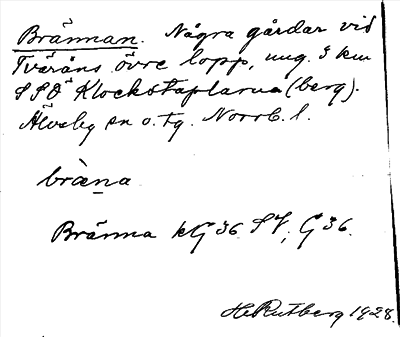 Brännan. Några gårdar vid
Tväråns övre lopp, ung. 3 km
SSO Klockstaplarna (berg).
Älvsby sn o. tg. Norrb. l.
bräna
Bränna kG 36 SV, G 36.
H. Rutberg 1928.